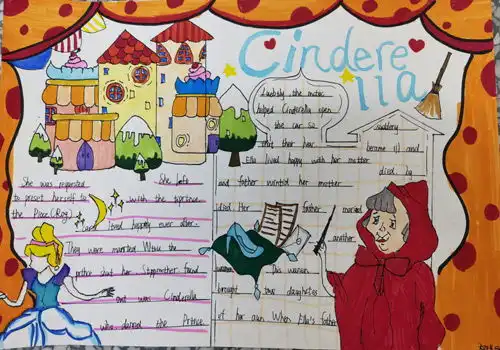 Cindere
lla
helped Cinderella open
the car. so
that ther hear
suddenly
became ill and
Ella lived happy with her mother
died by
and father wintid her mother
died Her father married
another
woman. Das woman
brought two daughetes
of her own When Ella's Father
She was requested
to preset herself to
the Place (Reg)
She left
with the sprince
lived happily ever after.
They were married When the
prince shat her Steppmother found
out was Cinderella
who danned the Prince